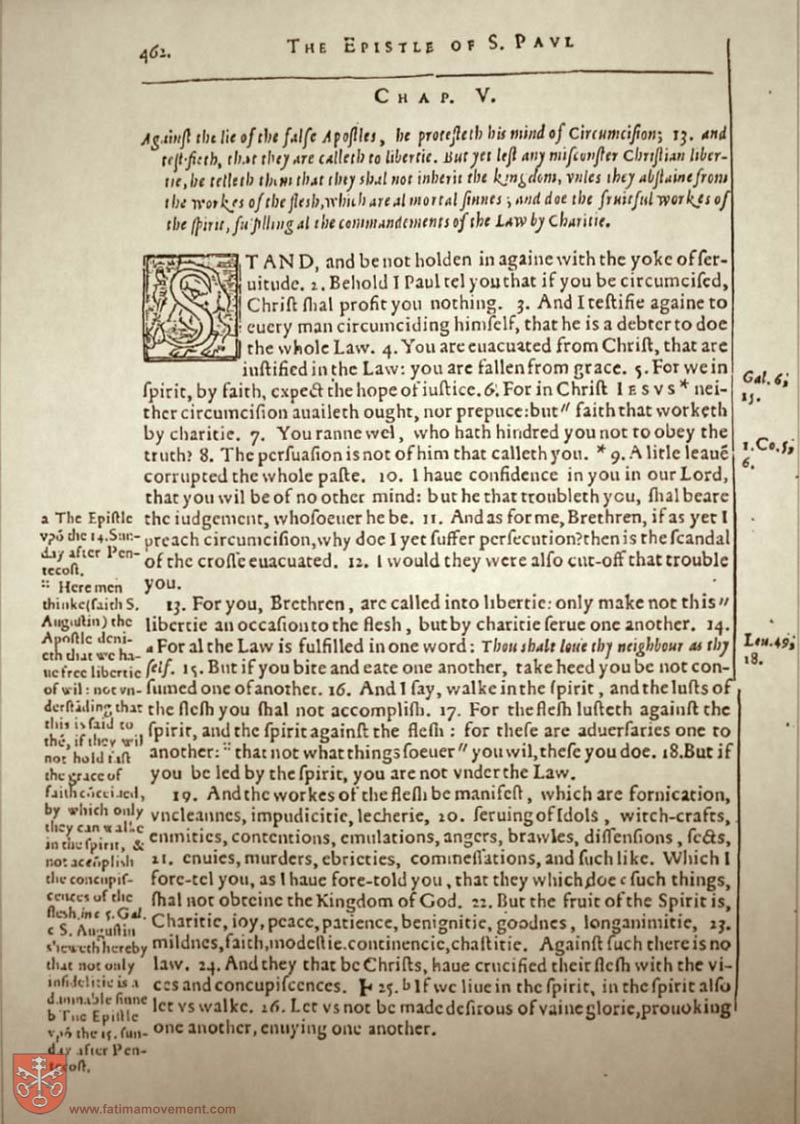 462. THE EPISTLE OF S. PAVL
CHAP. V.
Againſt the lie of the falſe Apoſtles, he proteſteth his mind of Circumciſion; 13. and
teſtifieth, that they are calleth to libertie. But yet leſt any miſconſter Chriſtian liber-
tie, he telleth them that they shal not inherit the kingdom, vnles they abſtaine from
the workes of the fleſh, which are al mortal ſinnes; and doe the fruitful workes of
the ſpirit, fulfilling al the commandements of the Law by Charitie.
STAND, and be not holden in againe with the yoke of ſer-
uitude. 2. Behold I Paul tel you that if you be circumciſed,
Chriſt ſhal profit you nothing. 3. And I teſtifie againe to
euery man circumciding himſelf, that he is a debter to doe
the whole Law. 4. You are euacuated from Chriſt, that are
iuſtified in the Law: you are fallen from grace. 5. For we in
ſpirit, by faith, expect the hope of iuſtice. 6. For in Chriſt IESVS * nei-
ther circumciſion auaileth ought, nor prepuce: but " faith that worketh
by charitie. 7. You ranne wel, who hath hindred you not to obey the
truth? 8. The perſuaſion is not of him that calleth you. * 9. A litle leauē
corrupted the whole paſte. 10. I haue confidence in you in our Lord,
that you wil be of no other mind: but he that troubleth you, ſhal beare
the iudgement, whoſoeuer he be. 11. And as for me, Brethren, if as yet I
preach circumciſion, why doe I yet ſuffer perſecution? then is the ſcandal
of the croſſe euacuated. 12. I would they were alſo cut-off that trouble
you.
13. For you, Brethren, are called into libertie: only make not this "
libertie an occaſion to the fleſh, but by charitie ſerue one another. 14.
a For al the Law is fulfilled in one word: Thou shalt loue thy neighbour as thy
ſelf. 15. But if you bite and eate one another, take heed you be not con-
ſumed one of another. 16. And I ſay, walke in the ſpirit, and the luſts of
the fleſh you ſhal not accompliſh. 17. For the fleſh luſteth againſt the
ſpirit, and the ſpirit againſt the fleſh: for theſe are aduerſaries one to
another: :: that not what things ſoeuer " you wil, theſe you doe. 18. But if
you be led by the ſpirit, you are not vnder the Law.
19. And the workes of the fleſh be manifeſt, which are fornication,
vncleannes, impudicitie, lecherie, 20. ſeruing of Idols, witch-crafts,
enmities, contentions, emulations, angers, brawles, diſſenſions, ſects,
21. enuies, murders, ebrieties, commeſſations, and ſuch like. Which I
fore-tel you, as I haue fore-told you, that they which doe c ſuch things,
ſhal not obteine the Kingdom of God. 22. But the fruit of the Spirit is,
Charitie, ioy, peace, patience, benignitie, goodnes, longanimitie, 23.
mildnes, faith, modeſtie. continencie, chaſtitie. Againſt ſuch there is no
law. 24. And they that be Chriſts, haue crucified their fleſh with the vi-
ces and concupiſcences. 25. b If we liue in the ſpirit, in the ſpirit alſo
let vs walke. 26. Let vs not be made deſirous of vaine glorie, prouoking
one another, enuying one another.
Gal. 6;
15.
1. Co. 5;
6.
Leu. 49;
18.
a The Epiſtle
vpō the 14. Sun-
day after Pen-
tecoſt.
:: Here men
thinke (ſaith S.
Auguſtin) the
Apoſtle deni-
eth that we ha-
ue free libertie
of wil: not vn-
derſtāding that
this is ſaid to
thē, if they wil
not hold faſt
the grace of
faith cōceiued,
by which only
they can walke
in the ſpirit, &
not accōpliſh
the concupiſ-
cences of the
fleſh. in c 5. Gal.
c S. Auguſtin
ſheweth hereby
that not only
infidelitie is a
damnable ſinne
b The Epiſtle
vpō the 15. ſun-
day after Pen-
tecoſt.
www.fatimamovement.com